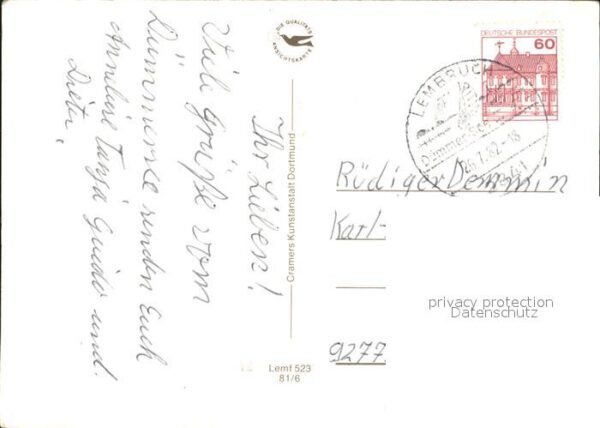 Ihr Lieben!
Viele Grüße vom
Dümmersee senden Euch
Anneliese Tanja Guido und
Dieter
DIE QUALITÄTS
ANSICHTSKARTE
Cramers Kunstanstalt Dortmund
Lemf 523
81/6
DEUTSCHE BUNDESPOST
60
LEMBRUCH
Dümmer-See
Rüdiger Demmin
Karl-
privacy protection
Datenschutz
9277